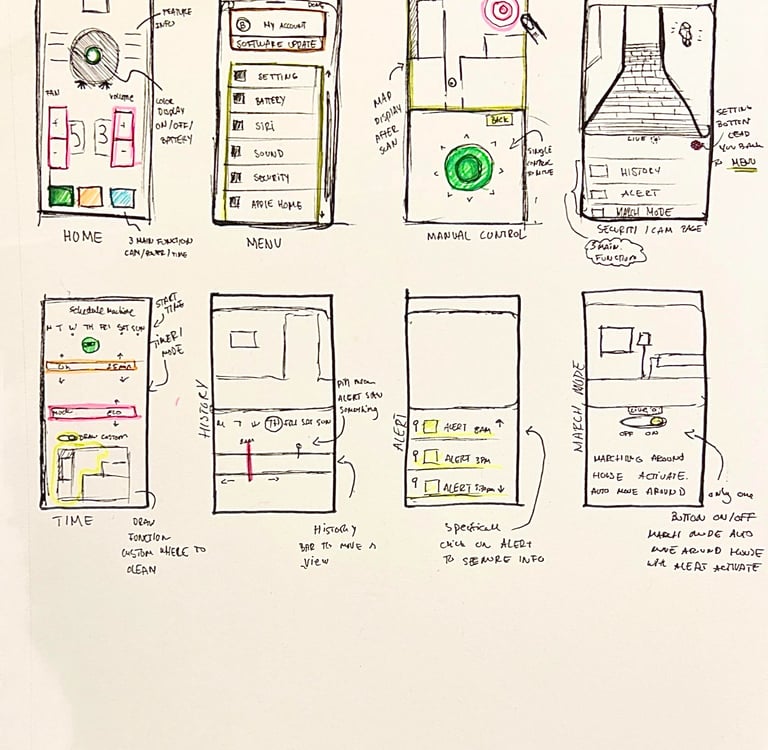 FEATURE
INFO
FAN
VOLUME
5
3
COLOR
DISPLAY
ON/OFF/
BATTERY
HOME
3 MAIN FUNCTION
CAM/ALERT/TIME
DONE
B MY ACCOUNT
SOFTWARE UPDATE
SETTING
BATTERY
SIRI
SOUND
SECURITY
APPLE HOME
MENU
MAP
DISPLAY
AFTER
SCAN
BACK
SINGLE
TO MOVE
MANUAL CONTROL
LIVE
HISTORY
ALERT
MARCH MODE
SETTING
BOTTON
LEAD
YOU BACK
TO MENU
SECURITY / CAM PAGE
3 MAIN
FUNCTION
Schedule Machine
M T W TH FRI SAT SUN
DRAW CUSTOM
START
TIME
TIMER/
MODE
TIME
DRAW
FUNCTION
CUSTOM WHERE TO
CLEAN
HISTORY
M T W TH FRI SAT SUN
PIN mean
ALERT SAW
something
History
BAR TO MOVE &
view
ALERT
ALERT 8AM
ALERT 3PM
ALERT
click on ALERT
TO SEE MORE INFO
MARCH MODE
LIVE
OFF ON
MARCHING AROUND
HOUSE ACTIVATE.
AUTO MOVE AROUND
only one
BUTTON ON/OFF
MARCH MODE AUTO
MOVE AROUND HOUSE
ALERT ACTIVATE